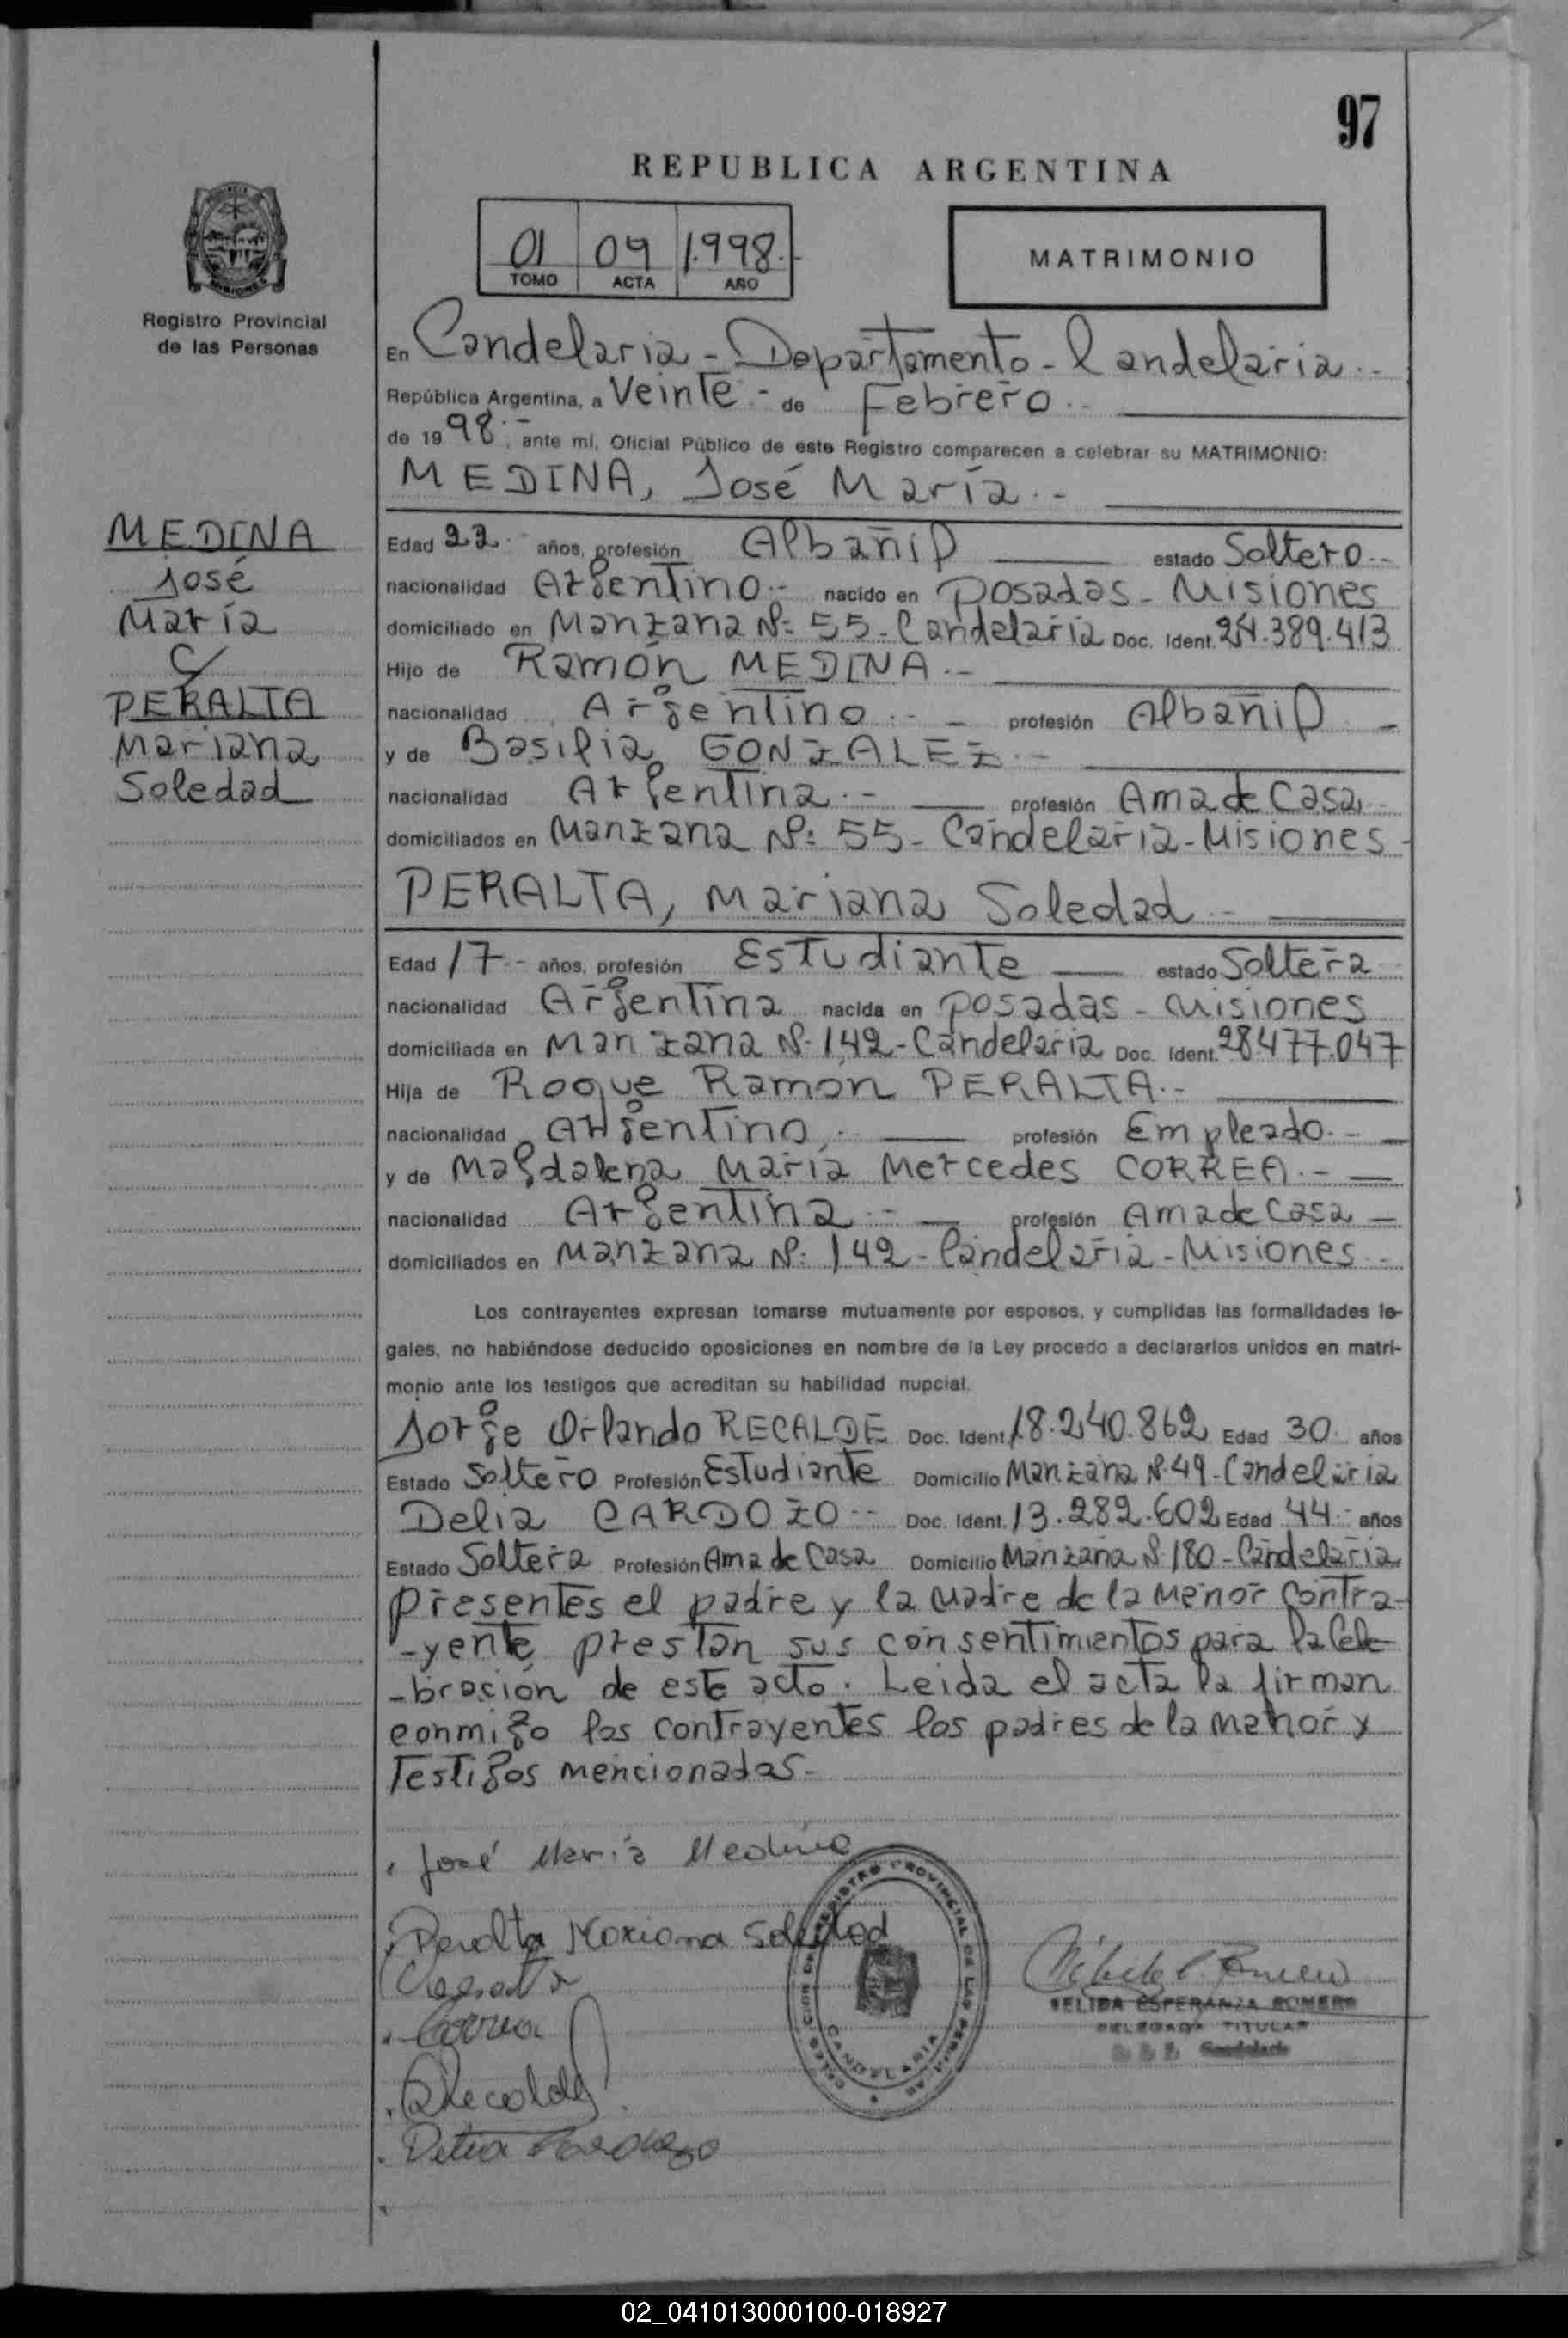 97
REPUBLICA ARGENTINA
01 09 1.998.-
TOMO ACTA AÑO
MATRIMONIO
Registro Provincial
de las Personas
En Candelaria - Departamento - Candelaria.-
República Argentina, a Veinte.- de Febrero.-
de 1998.-, ante mí, Oficial Público de este Registro comparecen a celebrar su MATRIMONIO:
MEDINA, José María.-
MEDINA
José
María
c/
PERALTA
Mariana
Soledad
Edad 22.- años, profesión Albañil estado Soltero.-
nacionalidad Argentino.- nacido en Posadas - Misiones
domiciliado en Manzana Nº: 55 - Candelaria Doc. Ident. 24.389.413
Hijo de Ramón MEDINA.-
nacionalidad Argentino.- - profesión Albañil -
y de Basilia GONZALEZ.-
nacionalidad Argentina.- profesión Ama de Casa.-
domiciliados en Manzana Nº: 55 - Candelaria - Misiones -
PERALTA, Mariana Soledad.-
Edad 17.- años, profesión Estudiante estado Soltera
nacionalidad Argentina nacida en Posadas - Misiones
domiciliada en Manzana Nº 142 - Candelaria Doc. Ident. 28.477.047
Hija de Roque Ramón PERALTA.-
nacionalidad Argentino.- profesión Empleado.-
y de Magdalena María Mercedes CORREA.-
nacionalidad Argentina.- profesión Ama de Casa -
domiciliados en Manzana Nº: 142 - Candelaria - Misiones -
Los contrayentes expresan tomarse mutuamente por esposos, y cumplidas las formalidades le-
gales, no habiéndose deducido oposiciones en nombre de la Ley procedo a declararlos unidos en matri-
monio ante los testigos que acreditan su habilidad nupcial.
Jorge Orlando RECALDE Doc. Ident. 18.240.862 Edad 30 años
Estado Soltero Profesión Estudiante Domicilio Manzana Nº 49 - Candelaria
Delia CARDOZO.- Doc. Ident. 13.282.602 Edad 44.- años
Estado Soltera Profesión Ama de Casa Domicilio Manzana Nº 180 - Candelaria
Presentes el padre y la Madre de la Menor Contra-
-yente prestan sus consentimientos para la Cele-
-bración de este acto. Leida el acta la firman
conmigo los contrayentes los padres de la menor y
Testigos mencionados.-
José María Medina
Peralta Mariana Soledad
Correa
Recalde
Delia Cardozo
REGISTRO PROVINCIAL DE LAS PERSONAS
CANDELARIA
NELIDA ESPERANZA ROMERO
DELEGADA TITULAR
Candelaria
02_041013000100-018927